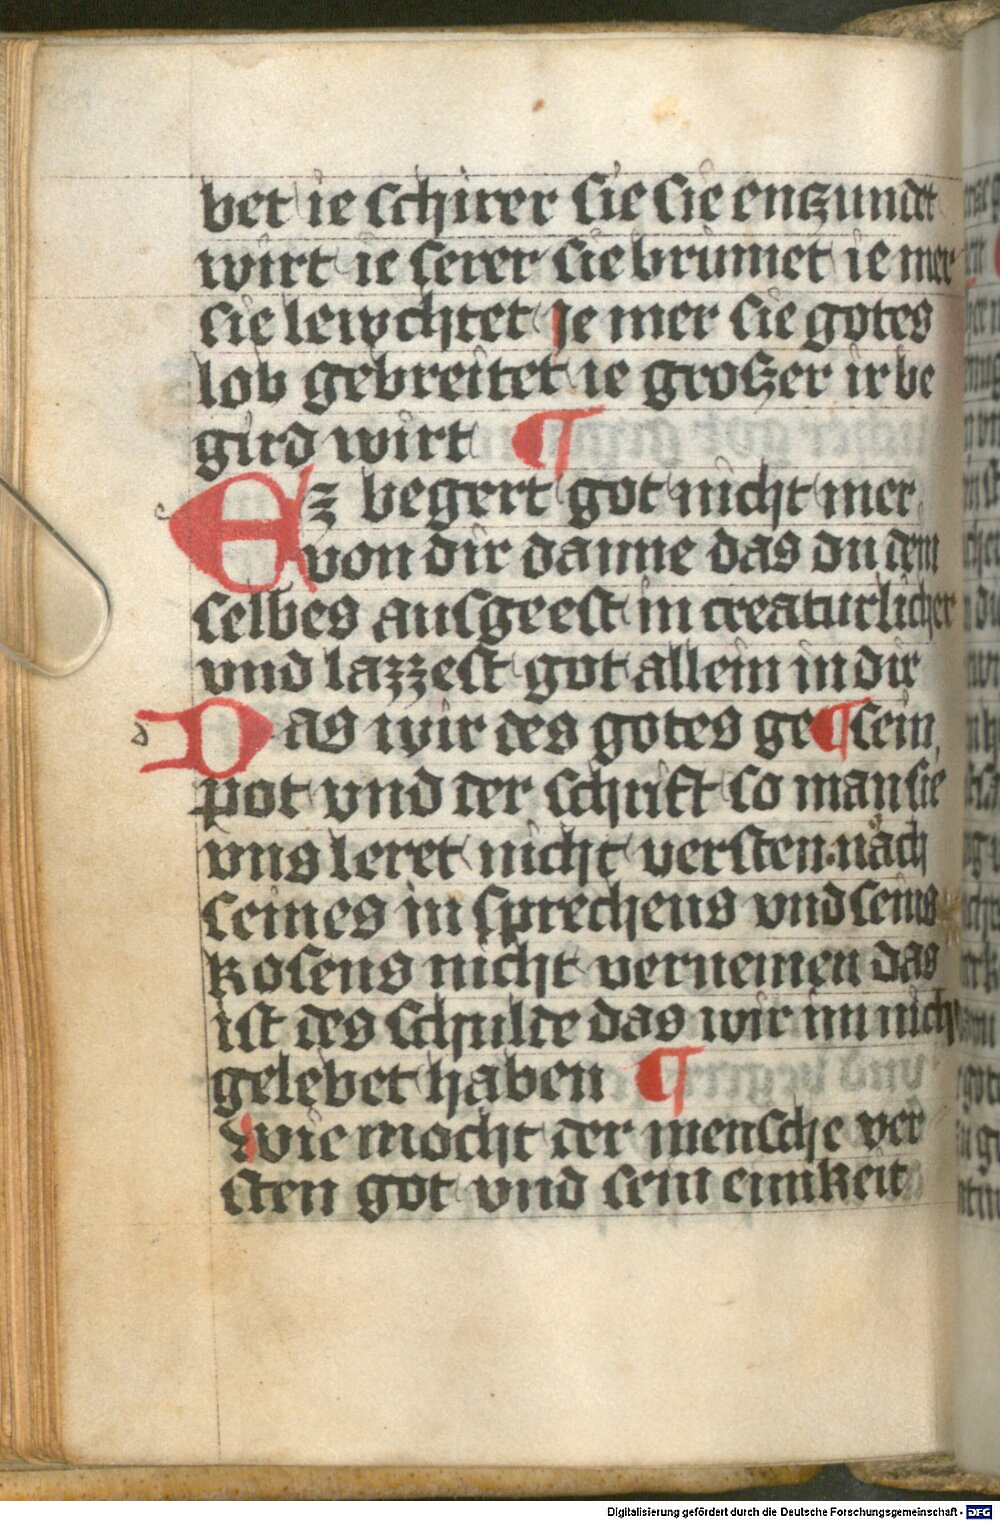 bet ie schirer sie sie enczundet
wirt ie serer sie brinnet ie mer
sie lewchtet je mer sie gotes
lob gebreitet ie groszer ir be
gird wirt ¶
Ez begert got nicht mer
von dir danne das du dein
selbes ausgeest in creaturlicher
vnd lazzest got allein in dir
Das wir des gotes ge ¶ sein
pot vnd der schrift so man sie
vns leret nicht versten nach
seines in sprechens vnd seins
kosens nicht vernemen das
ist des schulde das wir im nicht
gelebet haben ¶
wie mocht der mensche ver
sten got vnd sein einikeit
Digitalisierung gefördert durch die Deutsche Forschungsgemeinschaft - DFG